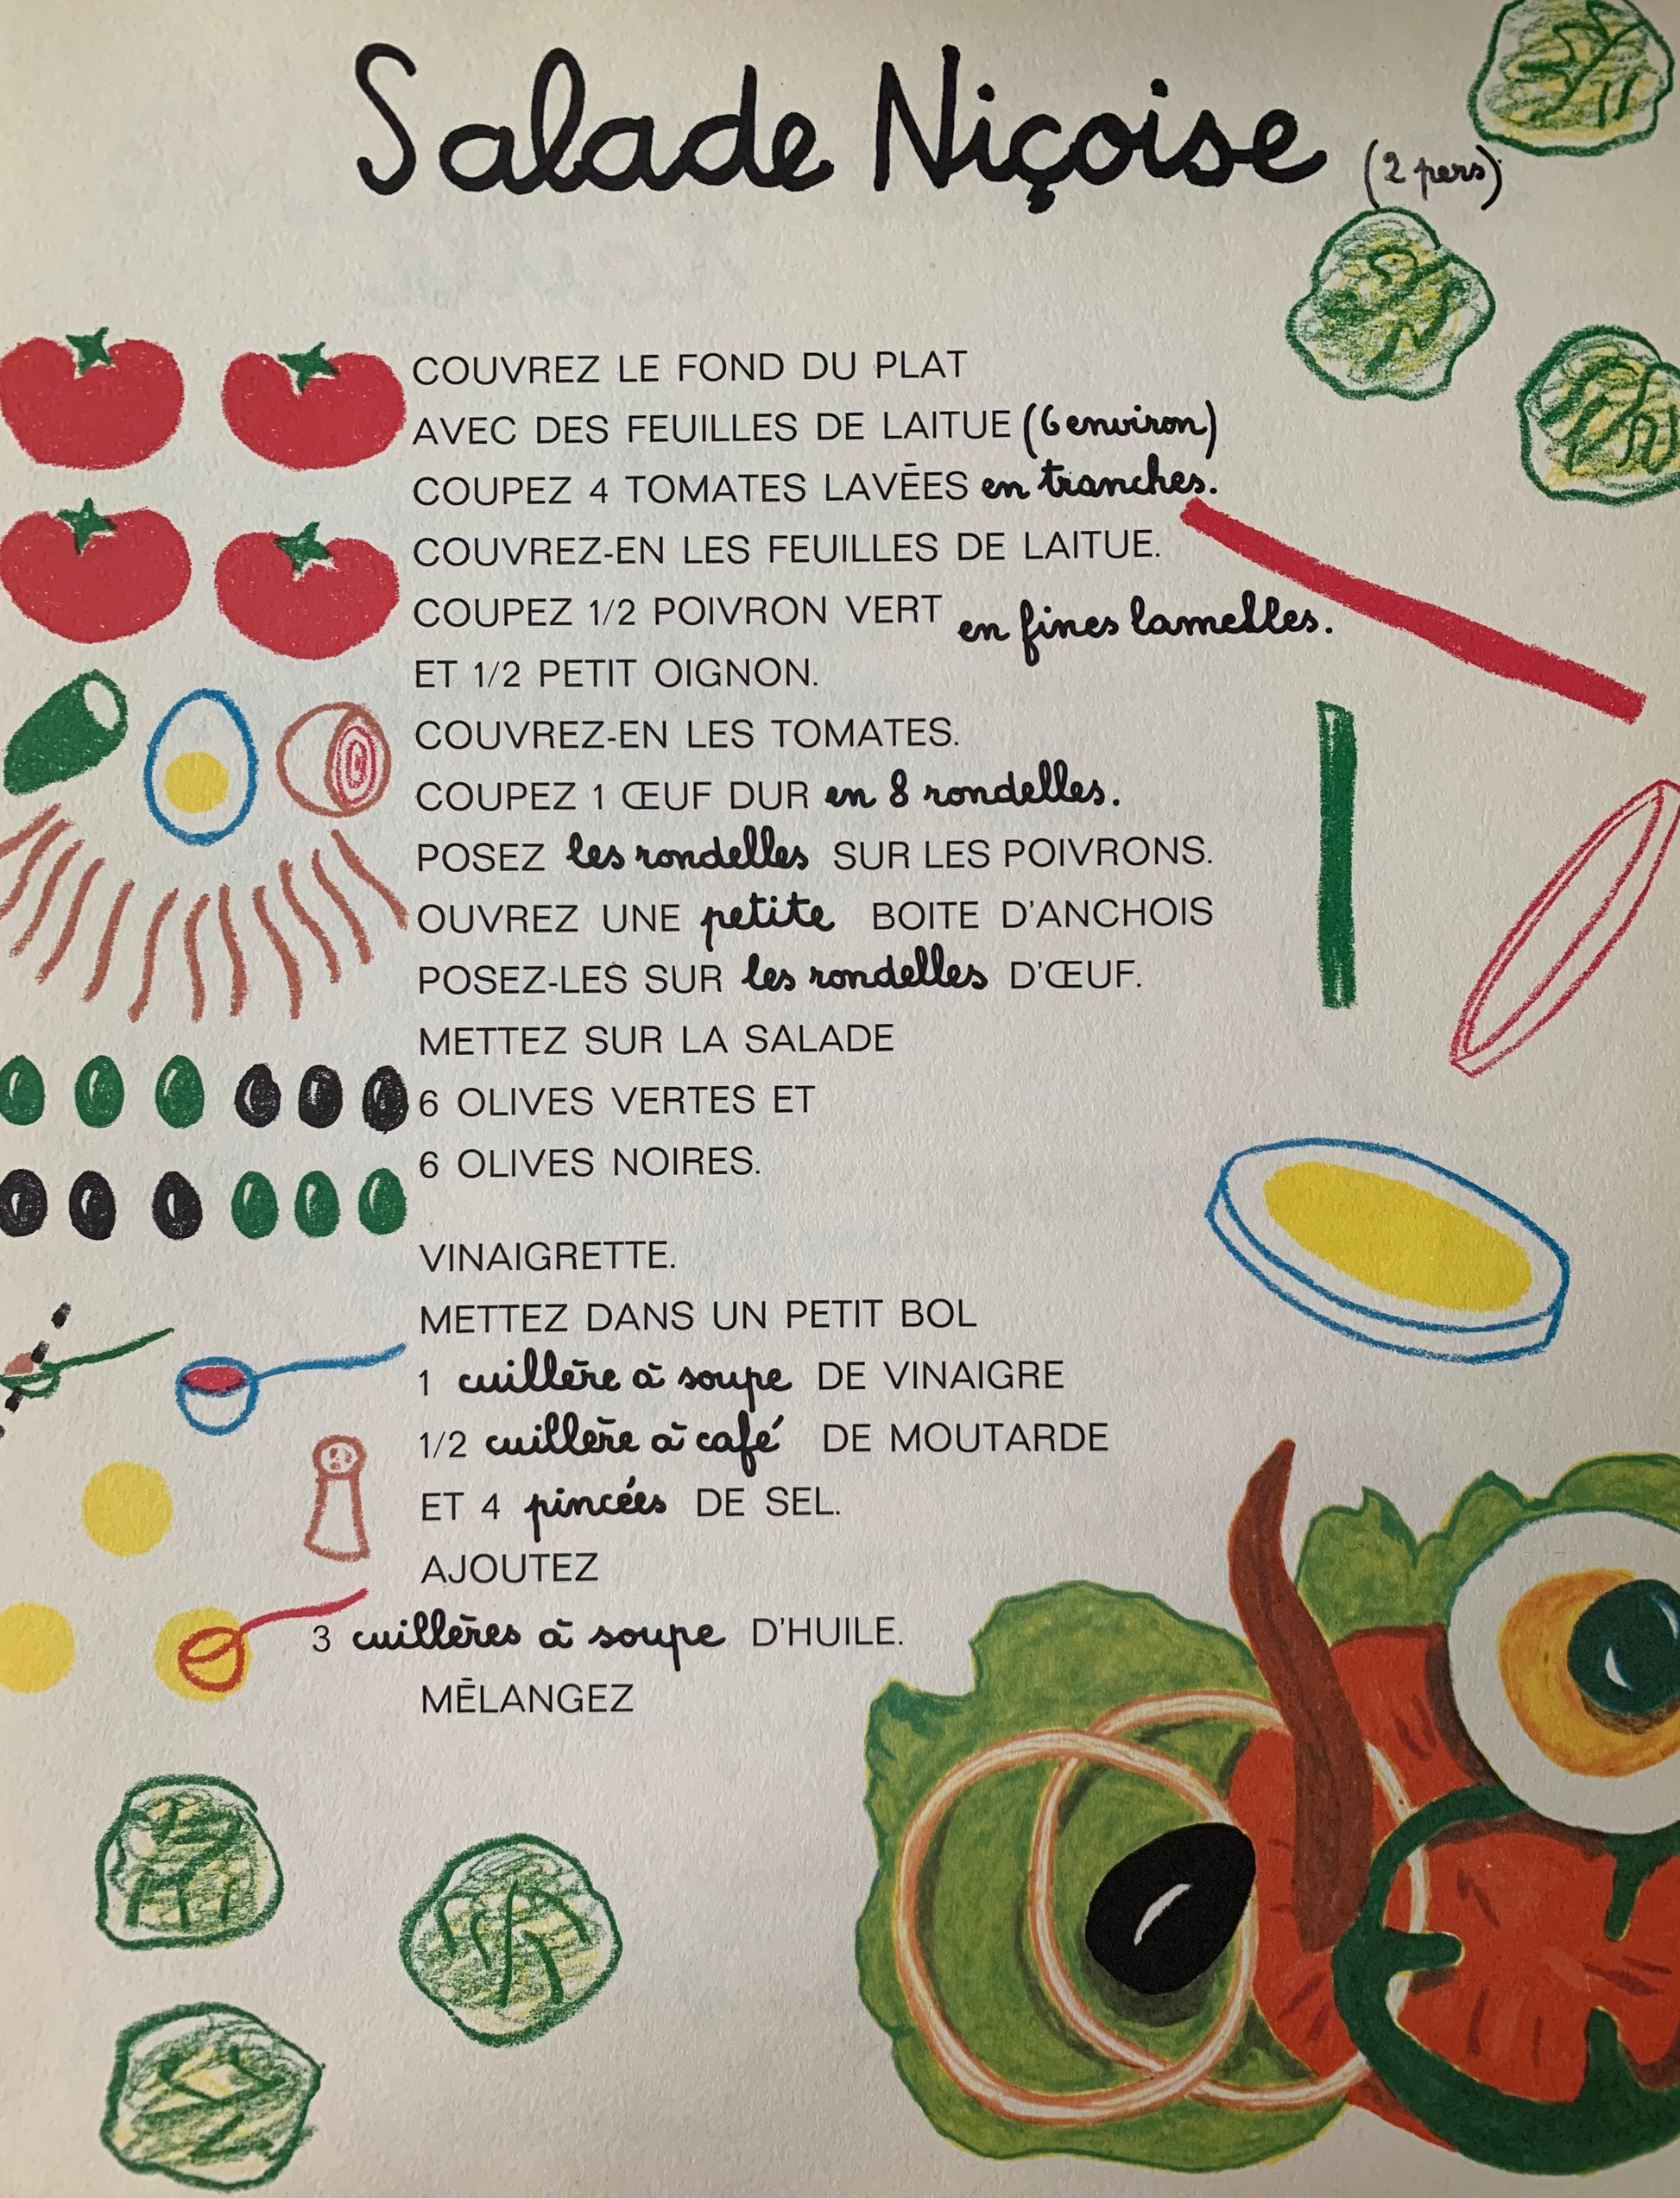 Salade Niçoise (2 pers)
COUVREZ LE FOND DU PLAT
AVEC DES FEUILLES DE LAITUE (6 environ)
COUPEZ 4 TOMATES LAVÉES en tranches.
COUVREZ-EN LES FEUILLES DE LAITUE.
COUPEZ 1/2 POIVRON VERT en fines lamelles.
ET 1/2 PETIT OIGNON.
COUVREZ-EN LES TOMATES.
COUPEZ 1 ŒUF DUR en 8 rondelles.
POSEZ les rondelles SUR LES POIVRONS.
OUVREZ UNE petite BOITE D'ANCHOIS
POSEZ-LES SUR les rondelles D'ŒUF.
METTEZ SUR LA SALADE
6 OLIVES VERTES ET
6 OLIVES NOIRES.
VINAIGRETTE.
METTEZ DANS UN PETIT BOL
1 cuillère à soupe DE VINAIGRE
1/2 cuillère à café DE MOUTARDE
ET 4 pincées DE SEL.
AJOUTEZ
3 cuillères à soupe D'HUILE.
MÉLANGEZ